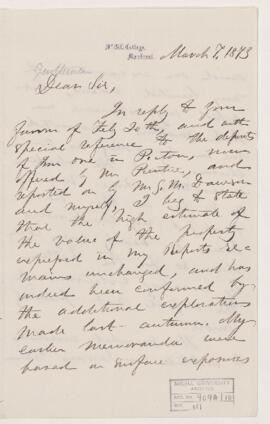 McGill College,
Montreal.
March 7, 1873
Gentlemen
Dear Sir,
In reply to your
favour of Feby 20th, and with
special reference to the deposits
of Iron ore in Pictou, now
offered by Mr. and
reported on by Mr G. M. Dawson
and myself, I beg to state
that the high estimate of
the value of the property
expressed in my Reports re
mains unchanged, and has
indeed been confirmed by
the additional explorations
made last autumn. My
earlier Memoranda were
based on surface exposures
McGILL UNIVERSITY
ARCHIVES
ACC. NO. 909A
REF.